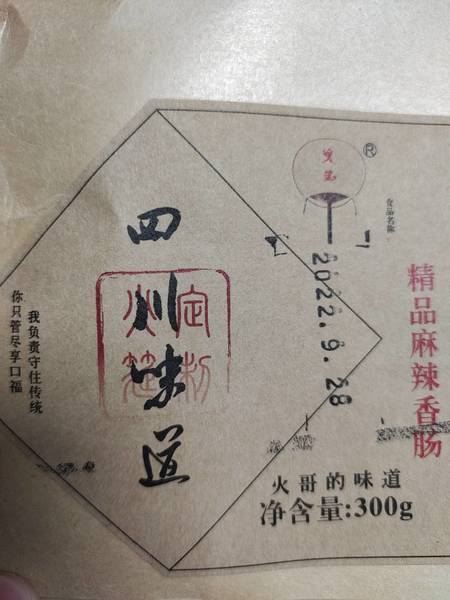 四川味道
我负责守住传统
你只管尽享口福
®
食品名称
2022.9.28
精品麻辣香肠
火哥的味道
净含量:300g